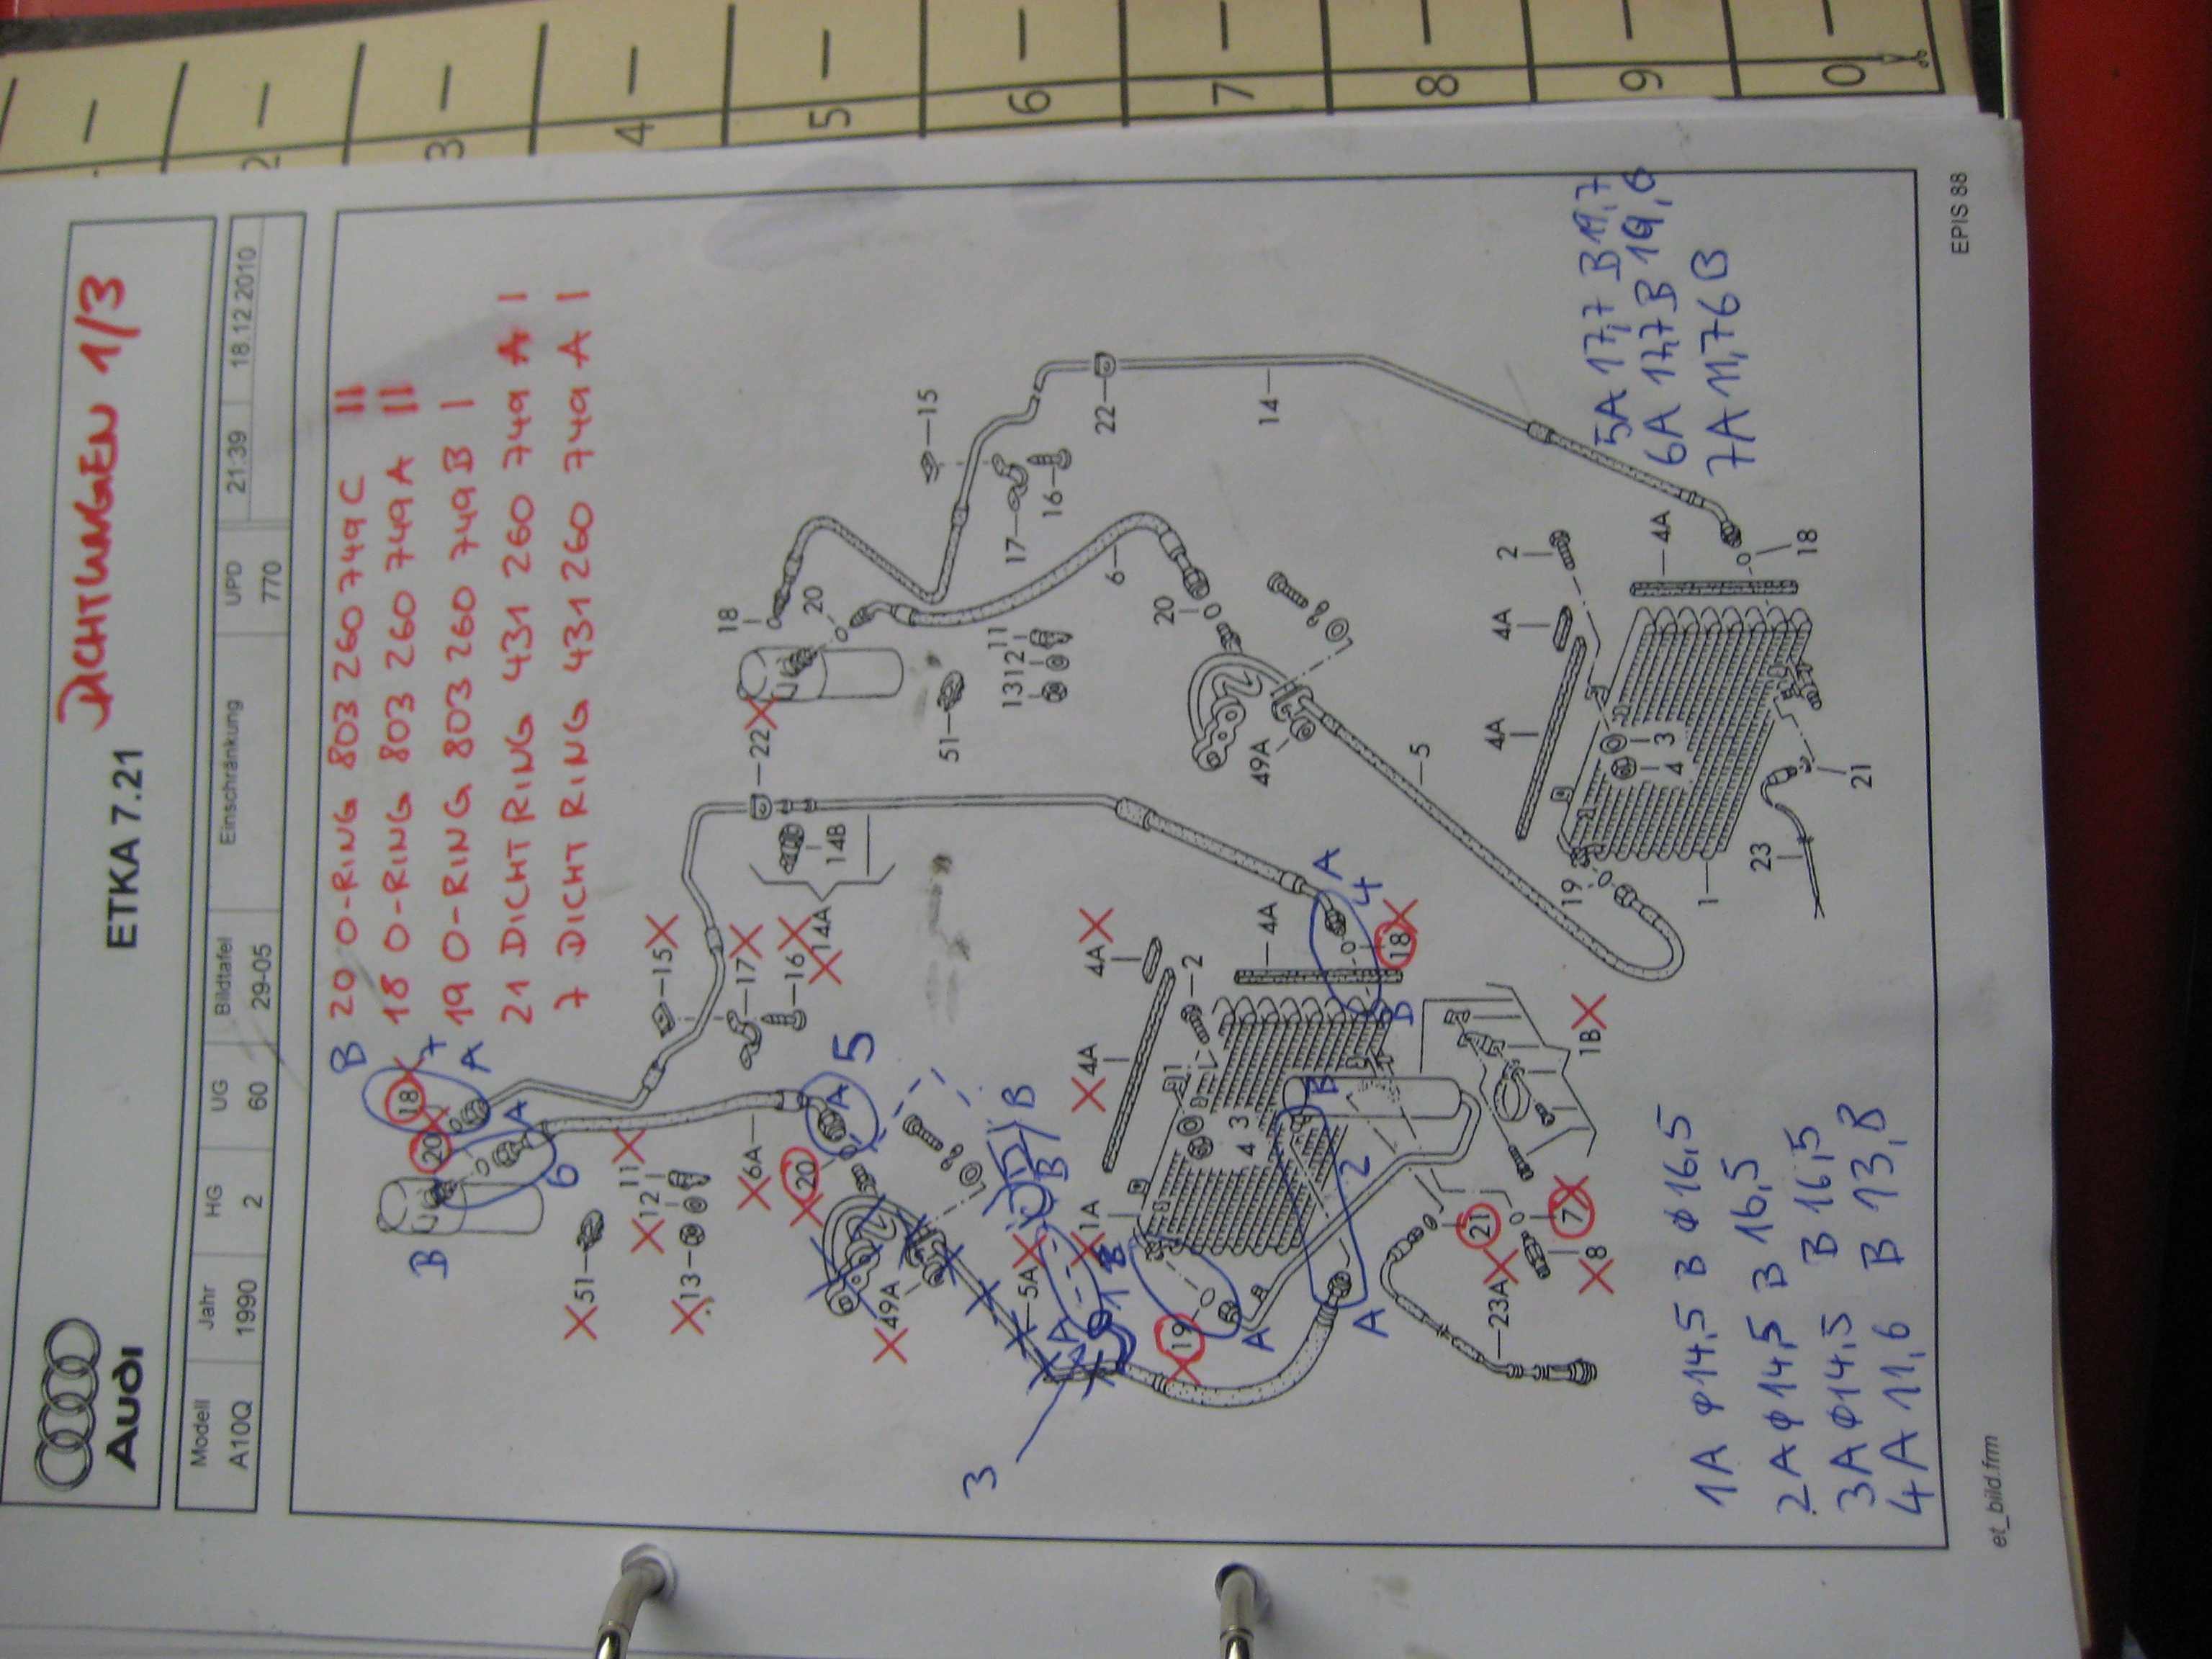 DICHTUNGEN 1/3
ETKA 7.21
Audi
Modell Jahr HG UG Bildtafel Einschränkung UPD 21:39 18.12.2010
A10Q 1990 2 60 29-05 770
20 O-RING 803 260 749 C II
18 O-RING 803 260 749 A II
19 O-RING 803 260 749 B I
21 DICHTRING 431 260 749 A I
7 DICHTRING 431 260 749 A I
B
18
7
A
20
A
6
B
51
13
12
11
15
17
16
14A
14B
22
22
18
20
51
13 12 11
15
17
16
22
14
6
20
49A
5
6A
20
A
5
49A
5A
B
B
3
A
1
B
1A
4A
4A
2
4A
A
4
18
B
4
3
B
2
A
A
19
23A
21
7
8
1B
19
1
23
21
4A
4A
2
4A
18
4
3
5A 17,7 B 19,7
6A 17,7 B 19,6
7A 11,76 B
1A Φ14,5 B Φ16,5
2A Φ14,5 B 16,5
3A Φ14,5 B 16,5
4A 11,6 B 13,8
et_bild.frm
EPIS 88
2
3
4
5
6
7
8
9
0